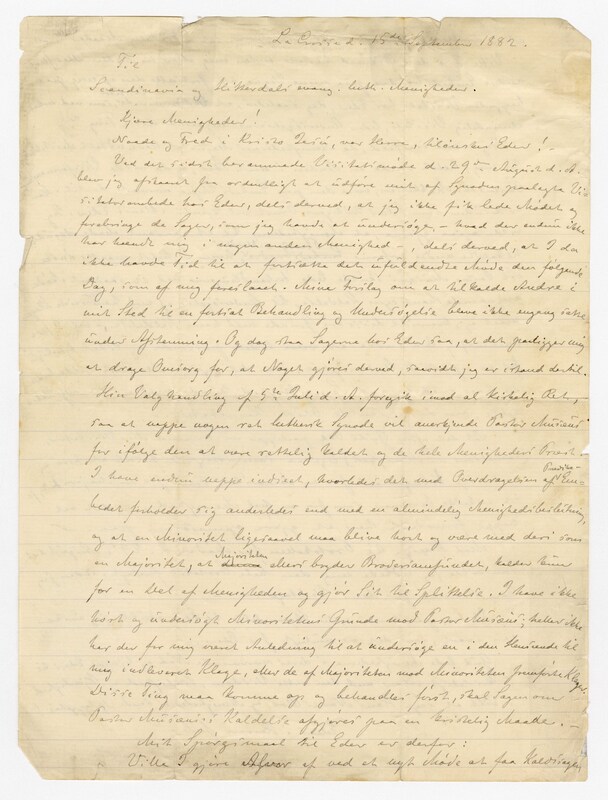 La Crosse d. 15de September 1882.
Til
Scandinavia og Hitterdals evang. luth. Menigheder.
Kjære Menigheder!
Naade og Fred i Kristo Jesu, vor Herre, tilönskes Eder!
Ved det sidst berammede Visitatsmöde d. 29de August d. A.
blev jeg afskaaret fra ordentligt at udföre mit af Synoden paalagte Vi-
sitatorembede hos Eder, dels derved, at jeg ikke fik lede Mödet og
frembringe de Sager, som jeg havde at undersöge, - hvad der endnu ikke
har hændt mig i nogen anden Menighed -, dels derved, at I da
ikke havde Tid til at fortsætte det ufuldendte Möde den fölgende
Dag, som af mig foreslaaet. Meine Forslag om at tilkalde Andre i
mit Sted til en fortsat Behandling og Undersögelse bleve ikke engang satte
under Afstemning. Og dog staa Sagerne hos Eder saa, at det paaligger mig
at drage Omsorg for, at Noget gjöres derved, saavidt jeg er istand dertil.
Hin Valghandling af 5te Juli d. A. foregik imod al kirkelig Ret,-
saa at neppe nogen ret luthersk Synode vil anerkjende Pastor
for ifölge den at være rettelig kaldet og de hele Menigheders Præst.
I have nemlig neppe indseet, hvorledes det med Overdragelsen af Prædike-
Em-
bedet forholder sig anderledes end med en almindelig Menighedsbeslutning,
og at en Minoritet ligesaavel maa blive hört og være med deri som
en Majoritet, at Majoriteten ellers bryder Brodersamfundet, kalder kun
for en Del af Menigheden og gjör Sit til Splittelse. I have ikke
hört og undersögt Minoritetens Grunde mod Pastor heller ikke
har der for mig været Anledning til at undersöge en i den Henseende til
mig indleveret Klage, eller de af Majoriteten mod Minoriteten fremförte Klager.
Disse Ting maa komme op og behandles först, skal Sagen om
Pastor Kaldelse afgjöres paa en kristelig Maade. -
Mit Spörgsmaal til Eder er derfor:
Ville I gjöre Alvor af ved et nyt Möde at faa